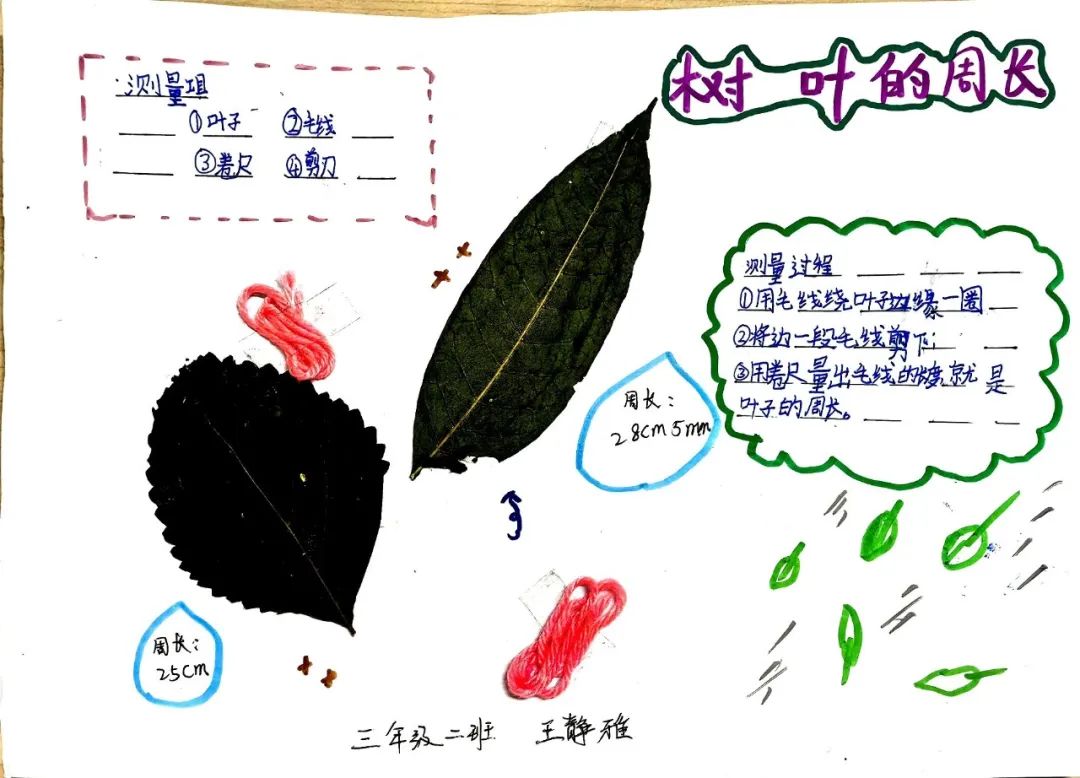 树叶的周长
测量
①叶子 ②毛线
③卷尺 ④剪刀
测量过程
①用毛线绕叶子边缘一圈
②将边一段毛线剪下
③用卷尺量出毛线的 就是
叶子的周长。
周长:
28cm 5mm
周长:
25cm
三年级二班 王静雅